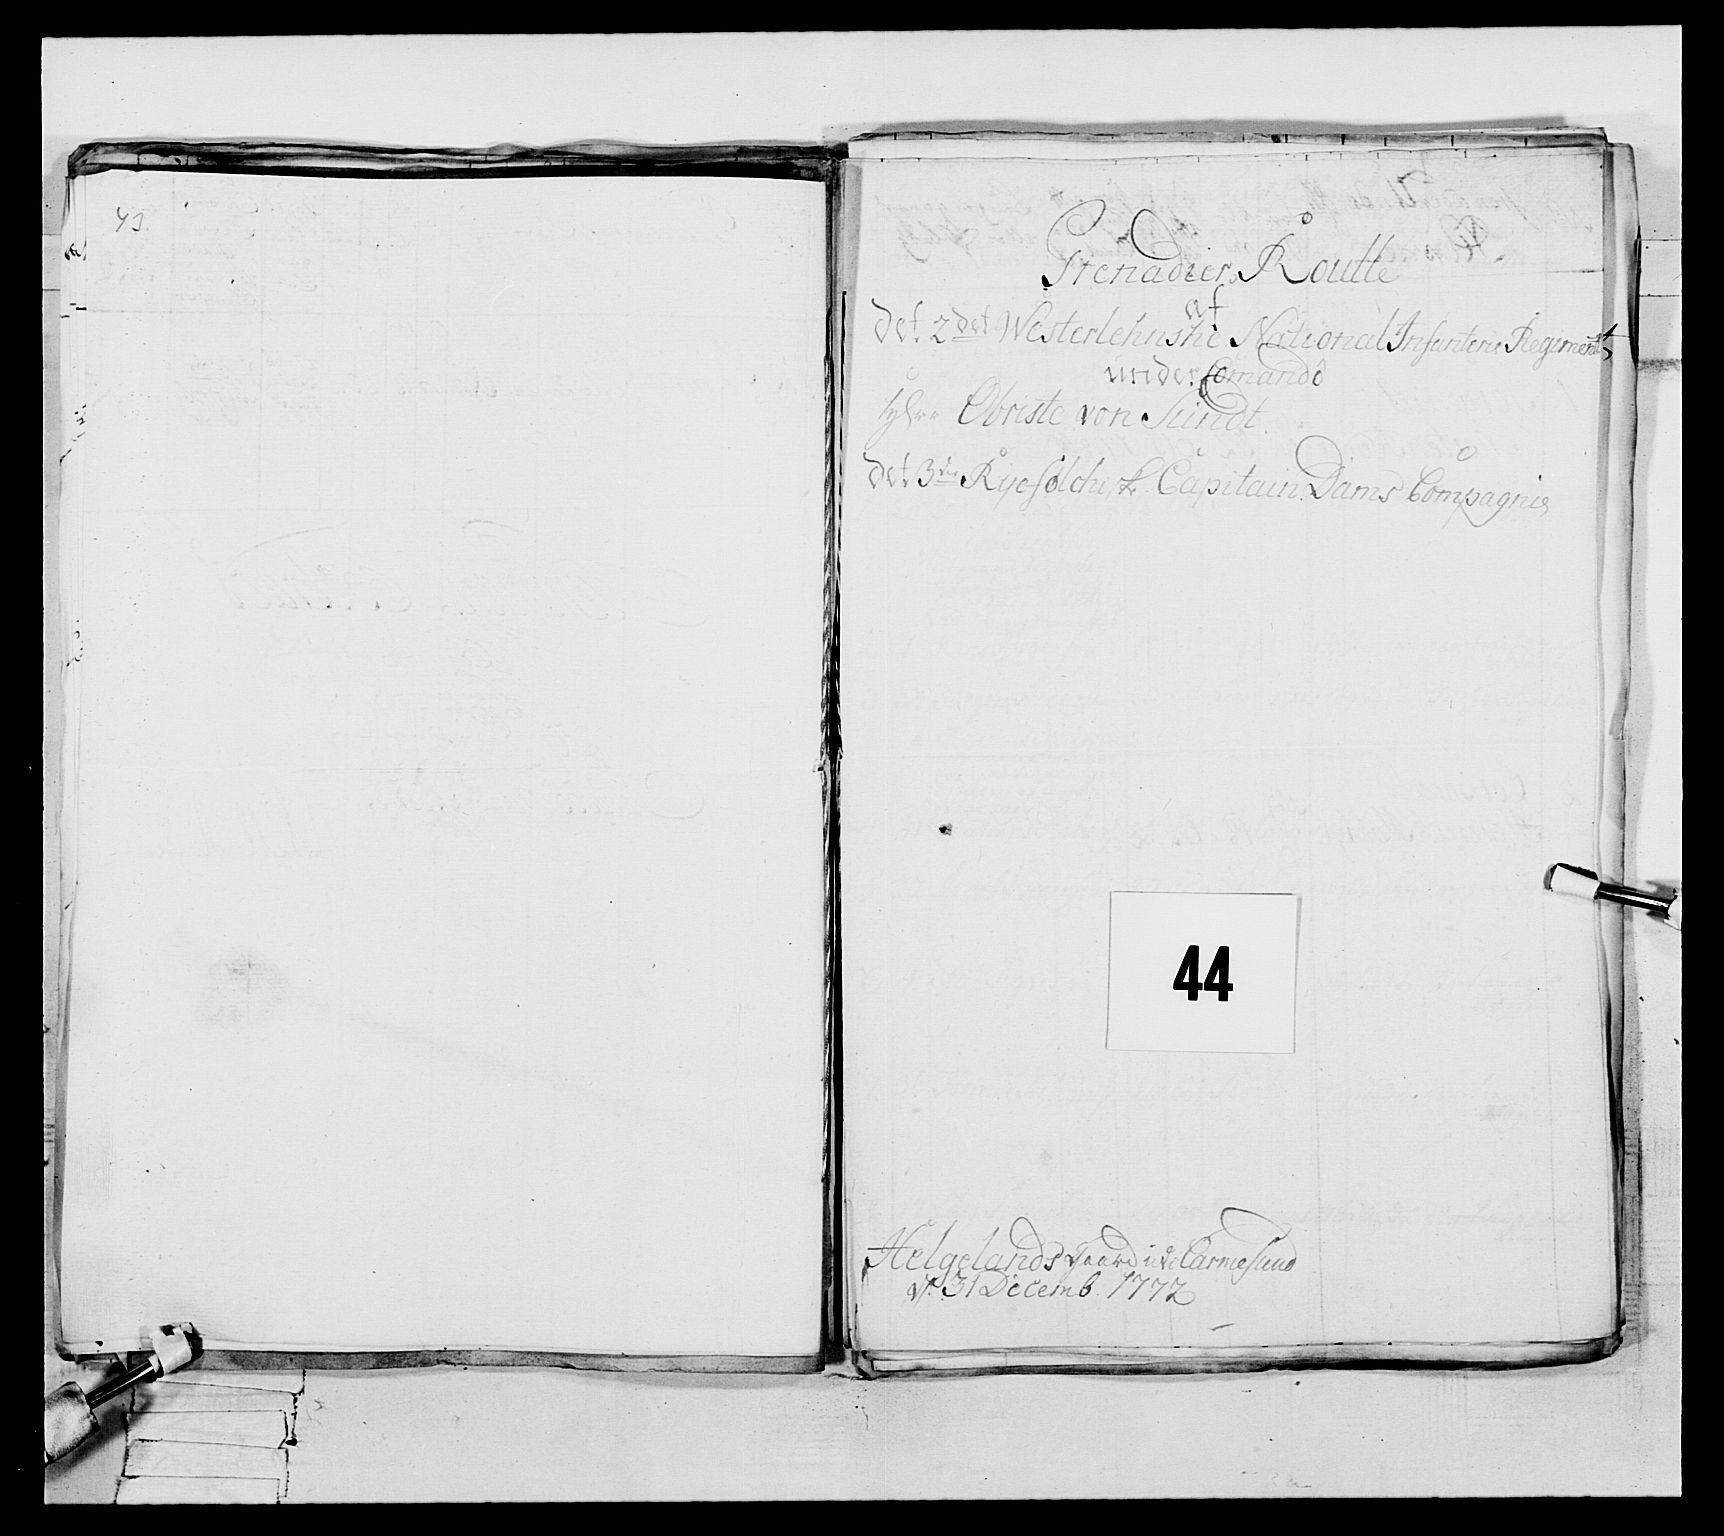 43.
Grenadier Roulle
af
det 2det Westerlehnske National Infanterie Regiment
under Comando
Hr. Obriste von Sundt.
det 3die Ryefölchisk Capitain Dams Compagnie
44
Helgelands Gaard i Carmesund
d. 31 Decemb. 1772